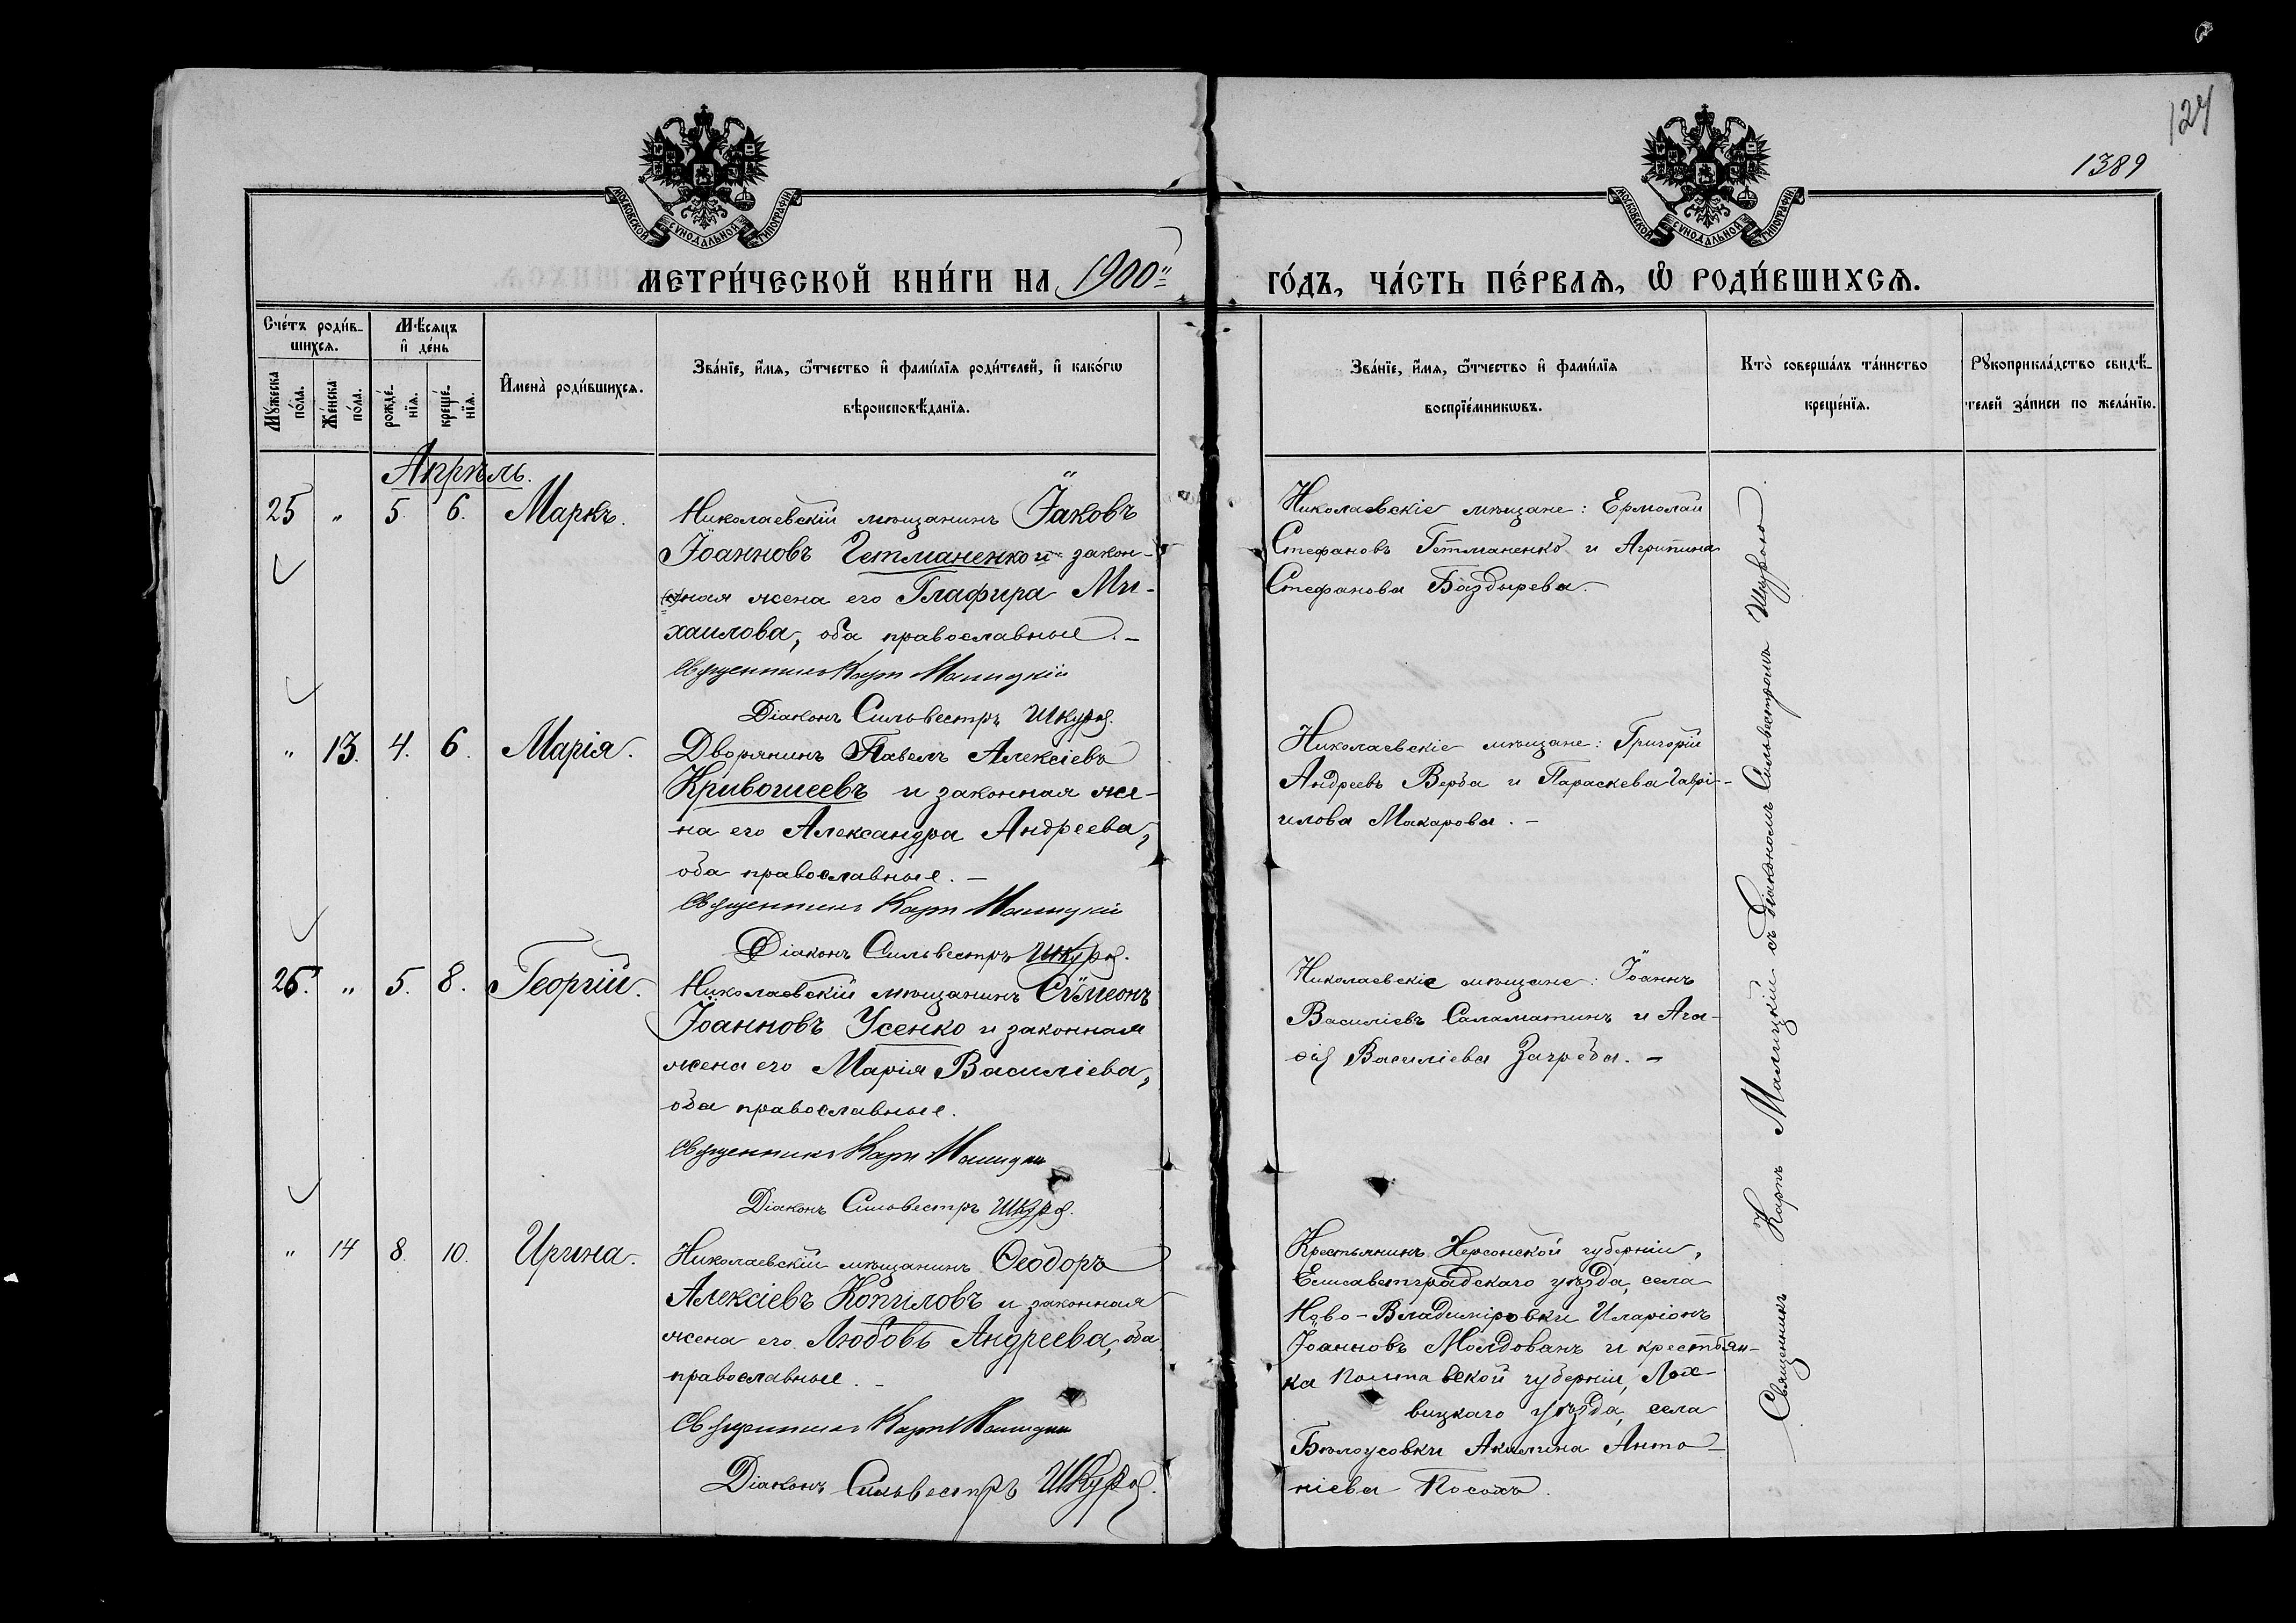 127
1389
МОСКОВСКОЙ СѴНОДАЛЬНОЙ ТИПОГРАФІИ
МОСКОВСКОЙ СѴНОДАЛЬНОЙ ТИПОГРАФІИ
МЕТРИ́ЧЕСКОЙ КНИ́ГИ НА 1900
ГО́ДЪ, ЧА́СТЬ ПЕ́РВАѦ, Ѽ РОДИ́ВШИХСѦ.
Сче́тъ роди́в-
шихсѧ.
Мꙋ́жеска
по́ла.
Же́нска
по́ла.
Мѣ́сѧцъ
и҆ де́нь
рожде́-
нїѧ.
креще́-
нїѧ.
И҆мена̀ роди́вшихсѧ.
Зва́нїе, и҆́мѧ, ѻ҆́тчество и҆ фами́лїѧ роди́телей, и҆ како́гѡ
вѣроисповѣ́данїѧ.
Зва́нїе, и҆́мѧ, ѻ҆́тчество и҆ фами́лїѧ
воспрїе́мникѡвъ.
Кто̀ соверша́лъ та́инство
креще́нїѧ.
Рꙋкоприкла́дство свидѣ́-
телей за́писи по жела́нїю.
Апрѣль.
25 " 5. 6. Маркъ.
Николаевскій мѣщанинъ Іаковъ
Іоанновъ Гетманенко и закон-
ная жена его Глафира Ми-
хаилова, оба православные. -
Священникъ Карпъ Малицкій
Діаконъ Сильвестръ Шкура.
Николаевскіе мѣщане: Ермолай
Стефановъ Гетманенко и Агрипина
Стефанова Баздырева.
" 13. 4. 6. Марія.
Дворянинъ Павелъ Алексіевъ
Кривошеевъ и законная же-
на его Александра Андреева,
оба православные. -
Священникъ Карпъ Малицкій
Діаконъ Сильвестръ Шкура.
Николаевскіе мѣщане: Григорій
Андреевъ Верба и Параскева Гаврі-
илова Макарова. -
26. " 5. 8. Георгій.
Николаевскій мѣщанинъ Сѷмеонъ
Іоанновъ Усенко и законная
жена его Марія Василіева,
оба православные.
Священникъ Карпъ Малицкій
Діаконъ Сильвестръ Шкура.
Николаевскіе мѣщане: Іоаннъ
Василіевъ Саламатинъ и Ага-
ѳія Василіева Загреба. -
" 14 8. 10. Ирина.
Николаевскій мѣщанинъ Ѳеодоръ
Алексіевъ Копиловъ и законная
жена его Любовь Андреева, оба
православные. -
Священникъ Карпъ Малицкій
Діаконъ Сильвестръ Шкура.
Крестьянинъ Херсонской губерніи,
Елисаветградскаго уѣзда, села
Ново-Владиміровки Иларіонъ
Іоанновъ Молдованъ и крестьян-
ка Полтавской губерніи, Лох-
вицкаго уѣзда, села
Бѣлоусовки Акилина Анто-
ніева Косахъ.
Священникъ Карпъ Малицкій съ Діакономъ Сильвестромъ Шкурою